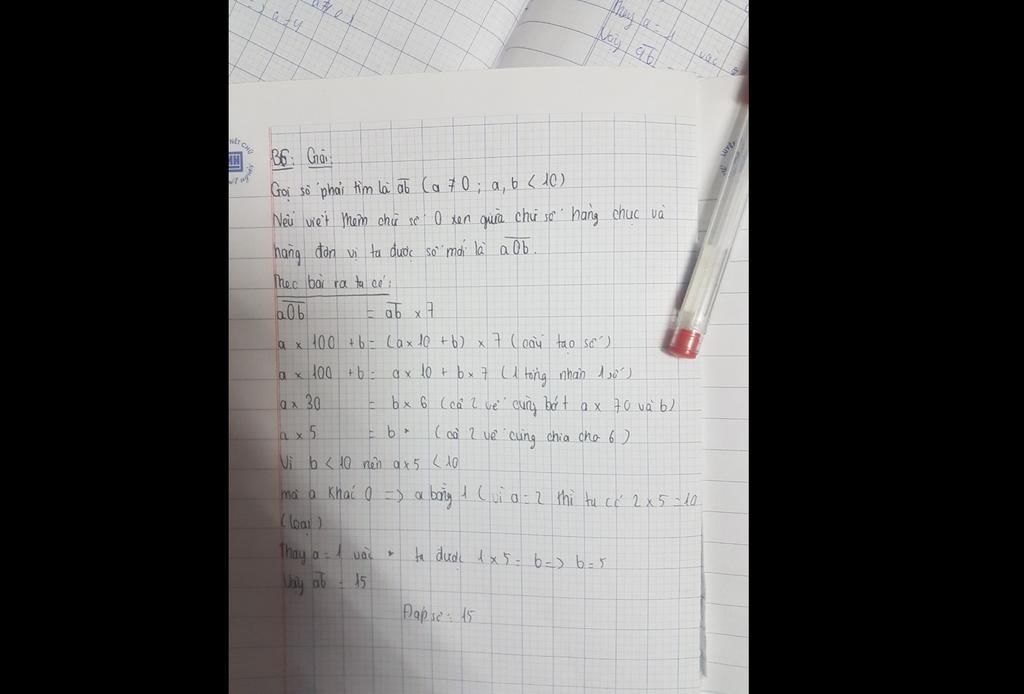 => a=4
a≠0,
Thay a = 1 vào
Vậy ab
B6: Giải:
Gọi số phải tìm là ab (a ≠ 0; a, b < 10)
Nếu viết thêm chữ số 0 xen giữa chữ số hàng chục và
hàng đơn vị ta được số mới là a0b.
Theo bài ra ta có:
a0b = ab x 7
a x 100 + b = (a x 10 + b) x 7 (cấu tạo số)
a x 100 + b = a x 10 + b x 7 (1 tổng nhân 1 số)
a x 30 = b x 6 (cả 2 vế cùng bớt a x 70 và b)
a x 5 = b * (cả 2 vế cùng chia cho 6)
Vì b < 10 nên a x 5 < 10
mà a khác 0 => a bằng 1 (vì a = 2 thì ta có 2 x 5 = 10
(loại)
Thay a = 1 vào * ta được 1 x 5 = b => b = 5
Vậy ab = 15
Đáp số: 15